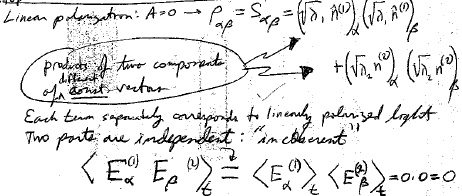 Linear polarization: A=0 → ρ_αβ = S_αβ = (√λ₁ n̂⁽¹⁾)_α (√λ₁ n̂⁽¹⁾)_β
+ (√λ₂ n⁽²⁾)_α (√λ₂ n⁽²⁾)_β
products of two components
different
of const vectors
Each term separately corresponds to linearly polarized light
Two parts are independent: "incoherent"
⟨E_α⁽¹⁾ E_β⁽²⁾⟩_t = ⟨E_α⁽¹⁾⟩_t ⟨E_β⁽²⁾⟩_t = 0·0 = 0